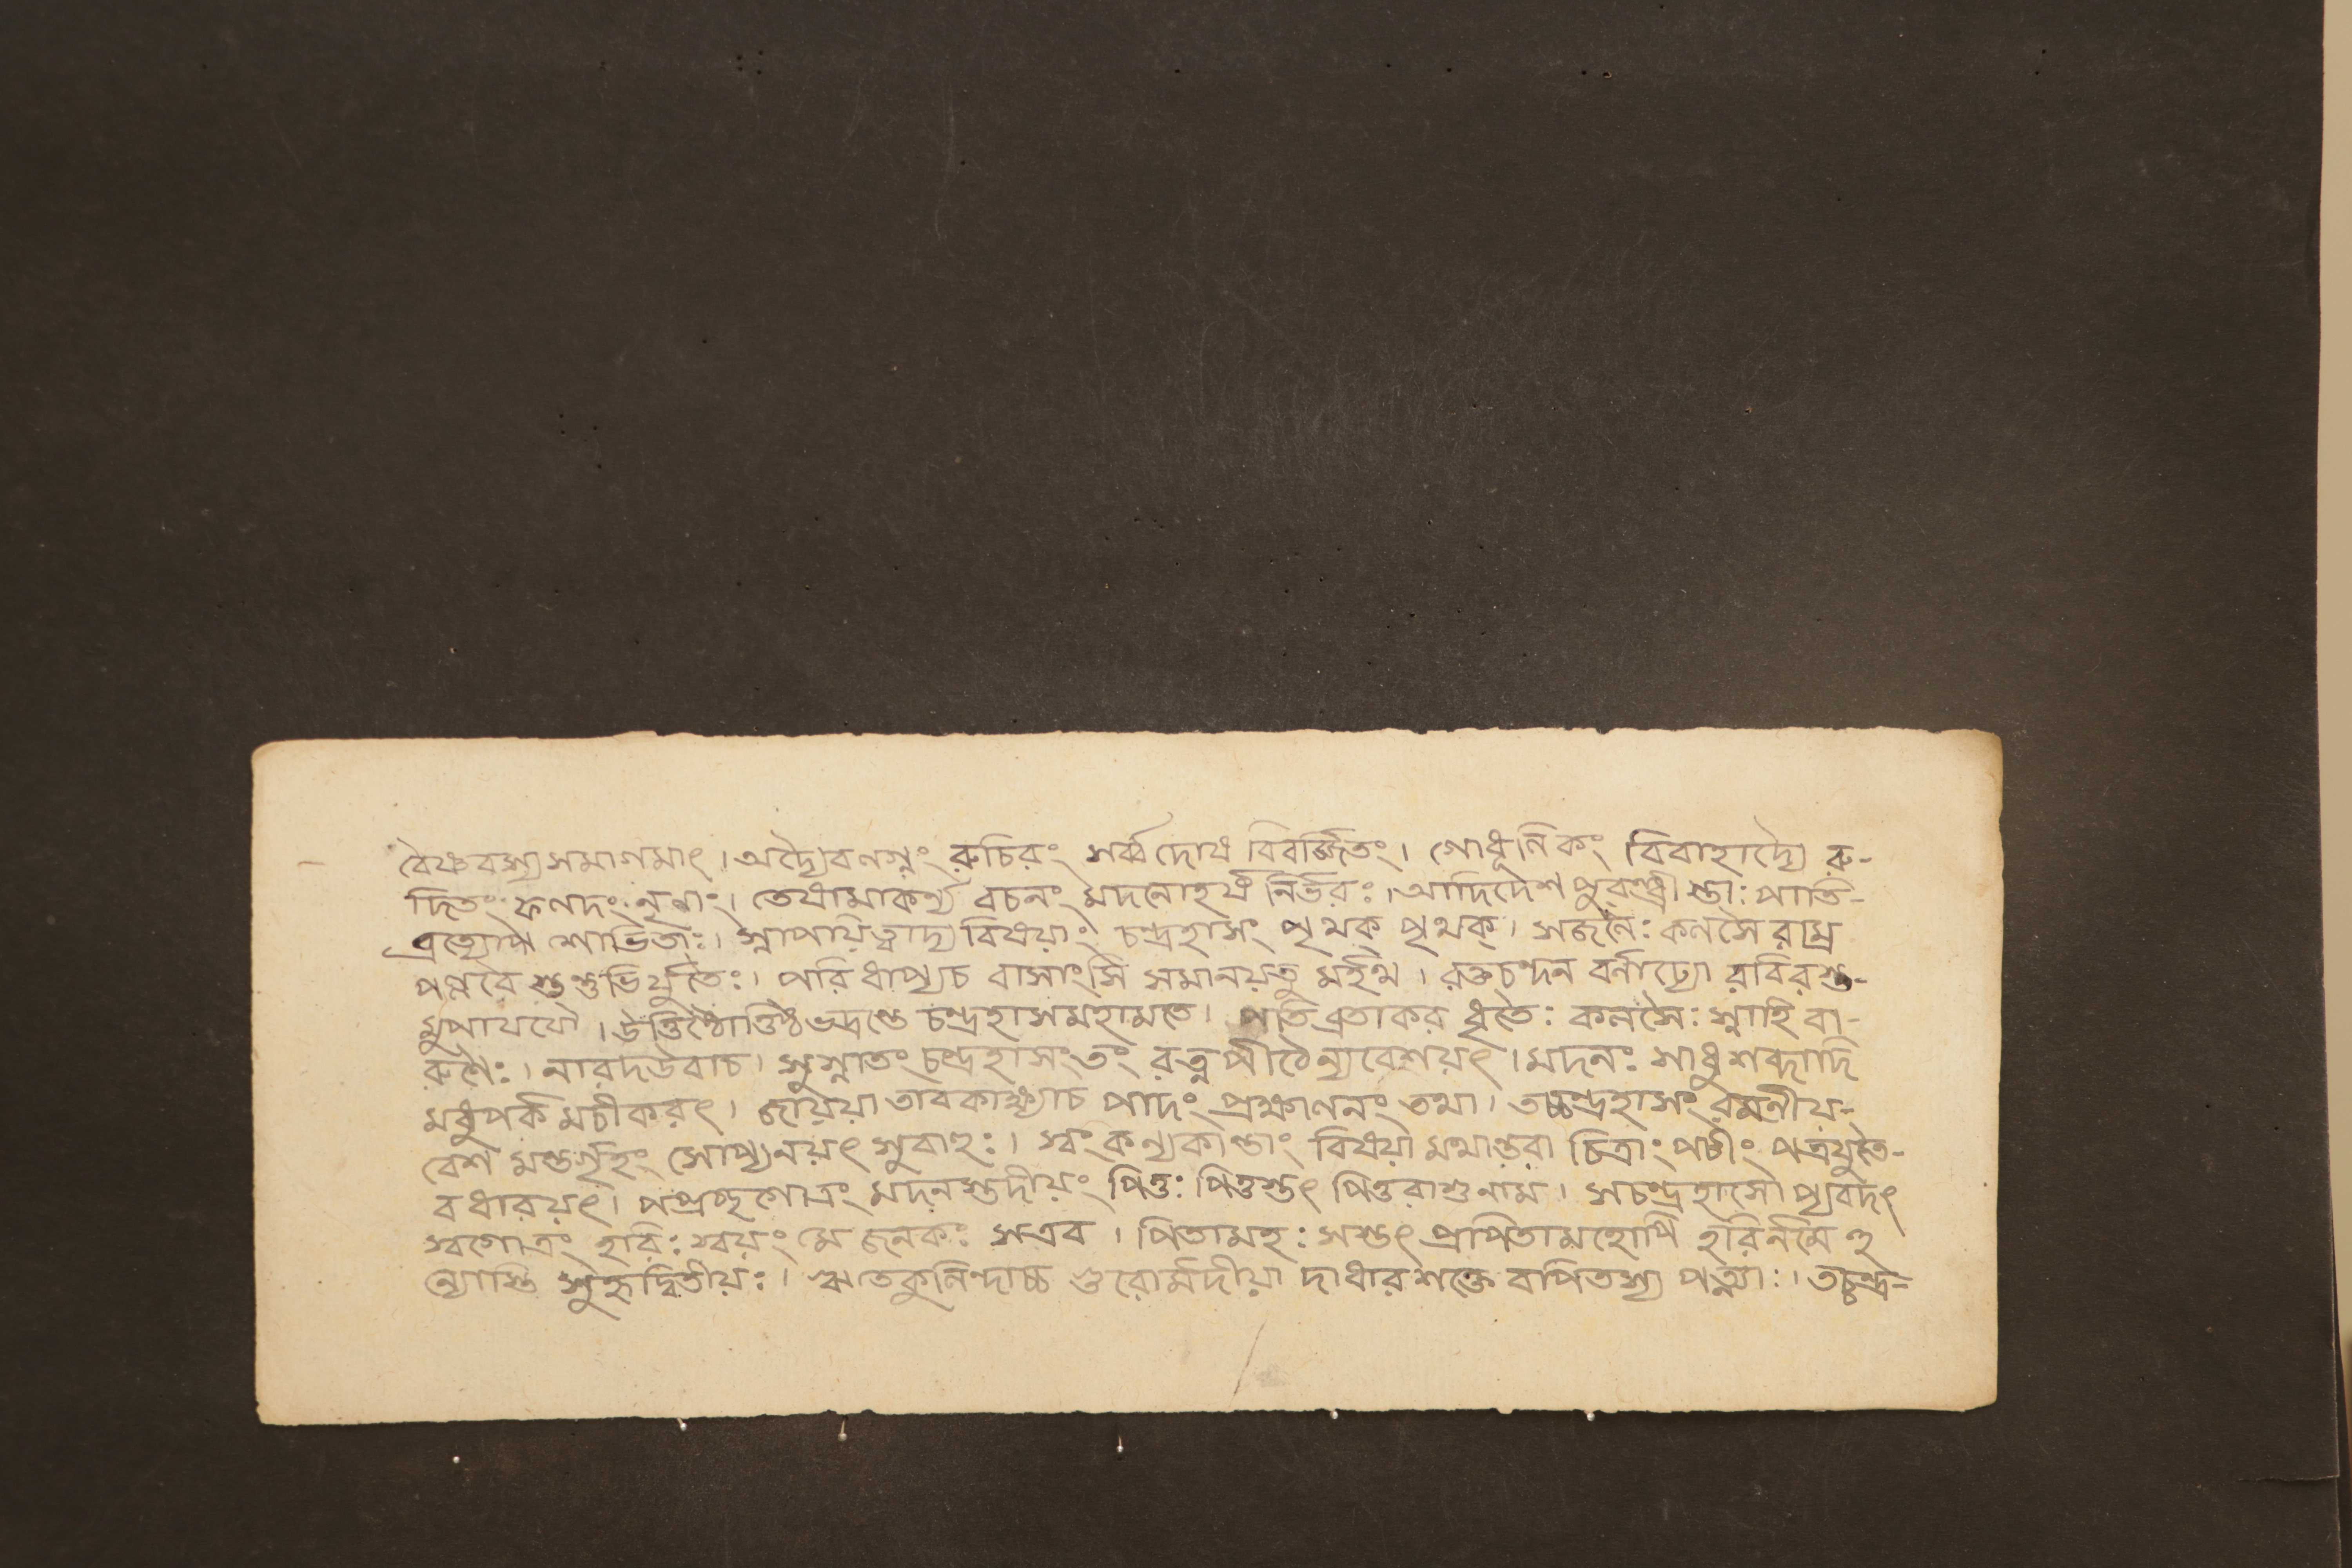 বৈষ্ণবস্য সমাগমাৎ। অদ্যৈব লগ্নং রুচিরং সর্ব্বদোষ বিবর্জ্জিতং। গোধূলিকং বিবাহাদ্যৈ রু-
দিতং ফলদং নৃণাং। তেষামাকর্ণ্য বচনং মদনোহর্ষ নির্ভরঃ। আদিদেশ পুরন্ধ্রী স্তাঃ পাতি-
ব্রত্যোপ শোভিতাঃ। স্নাপয়িত্বাদ্য বিষয়াং চন্দ্রহাসং পৃথক্ পৃথক্। সজলৈঃ কলসৈ রাম্র
পল্লবৈ স্তন্তুভির্যুতৈঃ। পরিধাপ্যচ বাসাংসি সমানয়তু মর্হথ। রক্তচন্দন বর্ণাঢ্যো রবিরস্ত-
মুপাযযৌ। উত্তিষ্ঠোত্তিষ্ঠ ভদ্রন্তে চন্দ্রহাস মহামতে। পতিব্রতাকর ধৃতৈঃ কলসৈঃ স্নাহি বা-
রুণৈঃ। নারদ উবাচ। সুস্নাতং চন্দ্রহাসং তং রত্নপীঠে ন্যবেশয়ৎ। মদনঃ সাধু শব্দাদি
মধুপর্ক মচীকরৎ। জায়য়া তাবকাক্ষ্যাচ পাদং প্রক্ষালনং তথা। তচ্চন্দ্রহাসং রমণীয়-
বেশ মন্তর্গৃহং সোপ্যনয়ৎ সুবাহুঃ। স্বং কন্যকান্তাং বিষয়া মথান্তরা চিত্রাং পটীং পত্রযুতৈ-
ব ধারয়ৎ। পপ্রচ্ছ গোত্রং মদনস্তদীয়ং পিতুঃ পিতুস্তৎ পিতুরাশু নাম। সচন্দ্রহাসো প্যবদৎ
স্বগোত্রং হরিঃ স্বয়ং মে জনকঃ স এব। পিতামহঃ সস্তৎ প্রপিতামহোপি হরির্নমে হ
ন্যোস্তি সুহৃদ্বিতীয়ঃ। ঋতে কুলিন্দাচ্চ গুরোর্মদীয়া দাধার শক্তে বপিতস্য পত্ন্যাঃ। তচ্চন্দ্র-